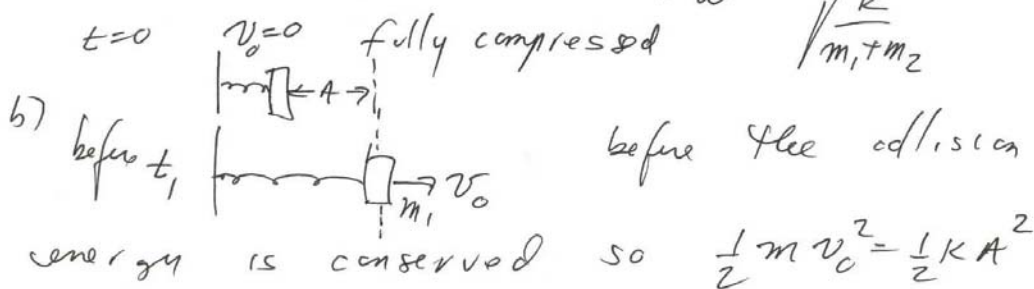 t=0 v₀=0 fully compressed √(k/(m₁+m₂))
←A→
b) before t₁ m₁ v₀ before the collision
energy is conserved so ½ m v₀² = ½ K A²